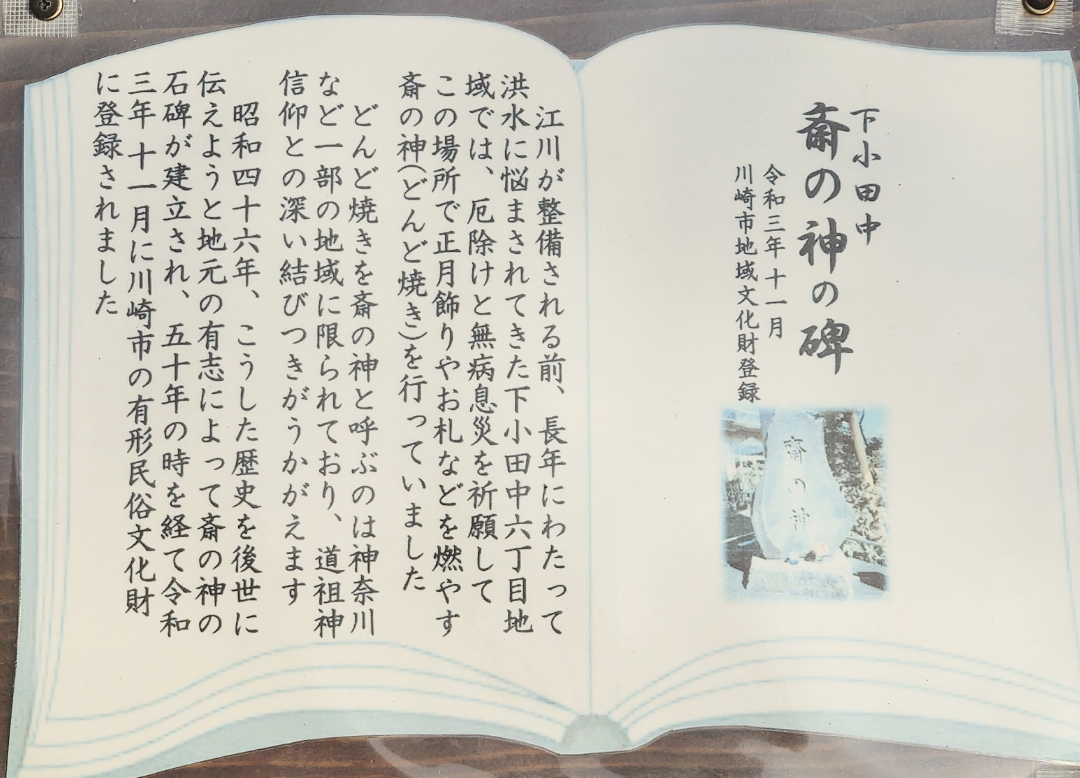 下小田中
斎の神の碑
令和三年十一月
川崎市地域文化財登録
斎の神
江川が整備される前、長年にわたって
洪水に悩まされてきた下小田中六丁目地
域では、厄除けと無病息災を祈願して
この場所で正月飾りやお札などを燃やす
斎の神(どんど焼き)を行っていました
どんど焼きを斎の神と呼ぶのは神奈川
など一部の地域に限られており、道祖神
信仰との深い結びつきがうかがえます
昭和四十六年、こうした歴史を後世に
伝えようと地元の有志によって斎の神の
石碑が建立され、五十年の時を経て令和
三年十一月に川崎市の有形民俗文化財
に登録されました